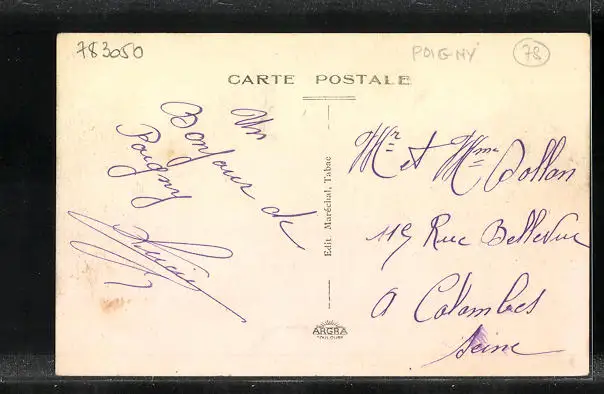 783050
POIGNY
78
CARTE POSTALE
Un
Bonjour de
Poigny
Lucien
Edit. Maréchal, Tabac
Mr et Mme Dollan
115 Rue Bellevue
a Colombes
Seine
ARGRA
TOULOUSE